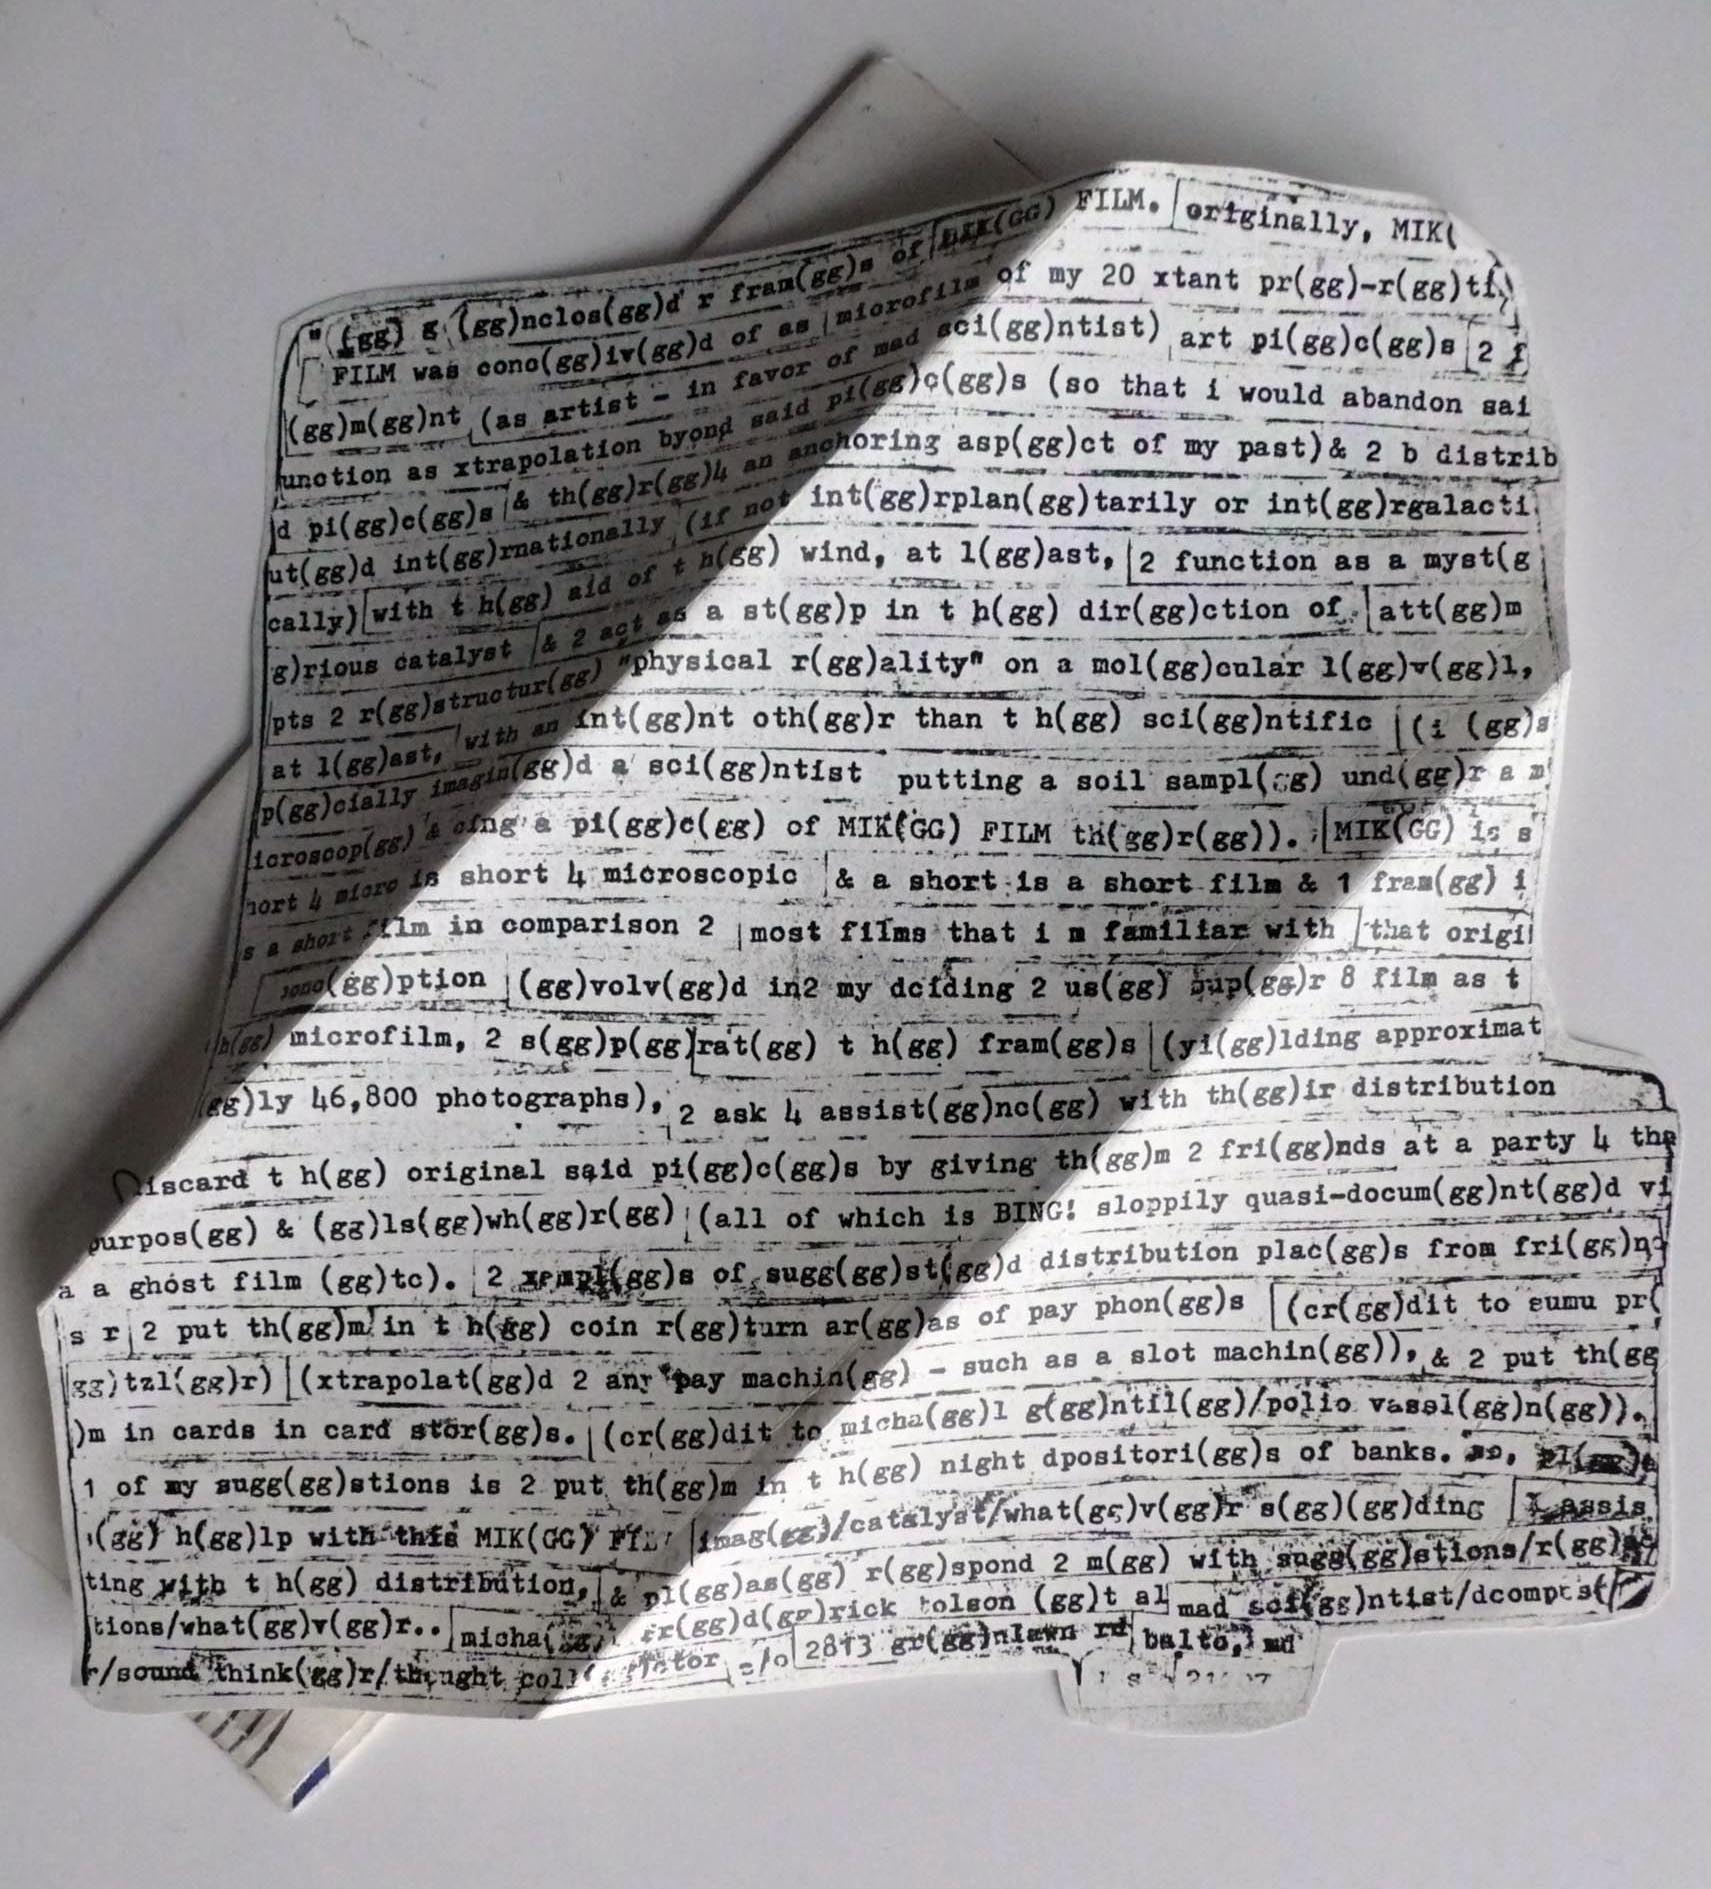 " (gg) g (gg)nclos(gg)d r fram(gg)s of MIK(GG) FILM. originally, MIK(
FILM was conc(gg)iv(gg)d of as microfilm of my 20 xtant pr(gg)-r(gg)ti
(gg)m(gg)nt (as artist - in favor of mad sci(gg)ntist) art pi(gg)c(gg)s 2 f
unction as xtrapolation byond said pi(gg)c(gg)s (so that i would abandon sai
d pi(gg)c(gg)s & th(gg)r(gg)4 an anchoring asp(gg)ct of my past)& 2 b distrib
ut(gg)d int(gg)rnationally (if not int(gg)rplan(gg)tarily or int(gg)rgalacti
cally) with t h(gg) aid of t h(gg) wind, at l(gg)ast, 2 function as a myst(g
g)rious catalyst & 2 act as a st(gg)p in t h(gg) dir(gg)ction of att(gg)m
pts 2 r(gg)structur(gg) "physical r(gg)ality" on a mol(gg)cular l(gg)v(gg)l,
at l(gg)ast, with an int(gg)nt oth(gg)r than t h(gg) sci(gg)ntific (i (gg)s
p(gg)cially imagin(gg)d a sci(gg)ntist putting a soil sampl(gg) und(gg)r a m
icroscop(gg) & cing a pi(gg)c(gg) of MIK(GG) FILM th(gg)r(gg)). MIK(GG) is s
hort 4 micro is short 4 microscopic & a short is a short film & 1 fram(gg) i
s a short film in comparison 2 most films that i m familiar with that origi
conc(gg)ption (gg)volv(gg)d in2 my dciding 2 us(gg) sup(gg)r 8 film as t
h(gg) microfilm, 2 s(gg)p(gg)rat(gg) t h(gg) fram(gg)s (yi(gg)lding approximat
(gg)ly 46,800 photographs), 2 ask 4 assist(gg)nc(gg) with th(gg)ir distribution
Discard t h(gg) original said pi(gg)c(gg)s by giving th(gg)m 2 fri(gg)nds at a party 4 tha
purpos(gg) & (gg)ls(gg)wh(gg)r(gg) (all of which is BING! sloppily quasi-docum(gg)nt(gg)d vi
a a ghost film (gg)tc). 2 xampl(gg)s of sugg(gg)st(gg)d distribution plac(gg)s from fri(gg)nd
s r 2 put th(gg)m in t h(gg) coin r(gg)turn ar(gg)as of pay phon(gg)s (cr(gg)dit to eumu pr(
gg)tzl(gg)r) (xtrapolat(gg)d 2 any pay machin(gg) - such as a slot machin(gg)), & 2 put th(gg
)m in cards in card stor(gg)s. (cr(gg)dit to micha(gg)l g(gg)ntil(gg)/polio vassl(gg)n(gg)).
1 of my sugg(gg)stions is 2 put th(gg)m in t h(gg) night dpositori(gg)s of banks. so,
(gg) h(gg)lp with this MIK(GG) FIL imag(gg)/catalyst/what(gg)v(gg)r s(gg)(gg)ding assis
ting with t h(gg) distribution, & pl(gg)as(gg) r(gg)spond 2 m(gg) with sugg(gg)stions/r(gg)ac
tions/what(gg)v(gg)r.. micha(gg)l fr(gg)d(gg)rick tolson (gg)t al mad sci(gg)ntist/dcompos(
r/sound think(gg)r/thought coll ctor c/o 2813 gr(gg)nlawn rd balto, md